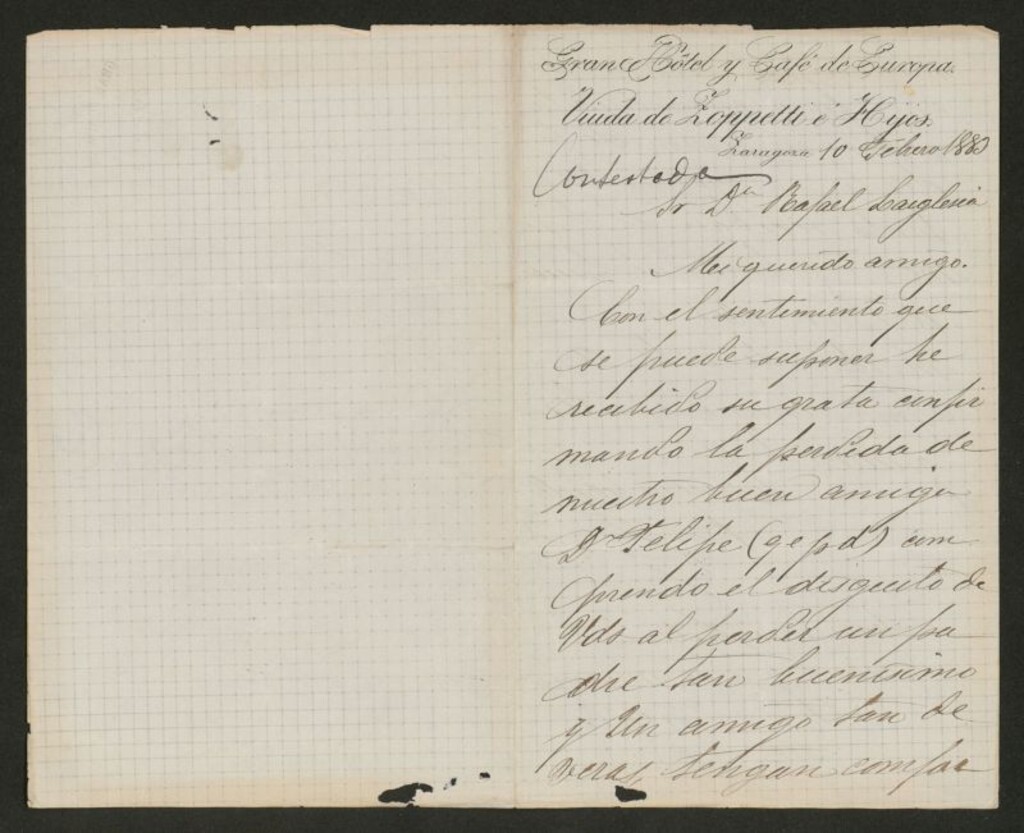 Gran Hôtel y Café de Europa.
Viuda de Zoppetti é Hijos.
Zaragoza 10 Febrero 1883
Contestada
Sr Dn Rafael Laiglesia
Mi querido amigo.
Con el sentimiento que
se puede suponer he
recibido su grata confir
mando la perdida de
nuestro buen amigo
Dn Felipe (q e p d) com
prendo el disgusto de
Vds al perder un pa
dre tan buenisimo
y un amigo tan de
veras, tengan confor